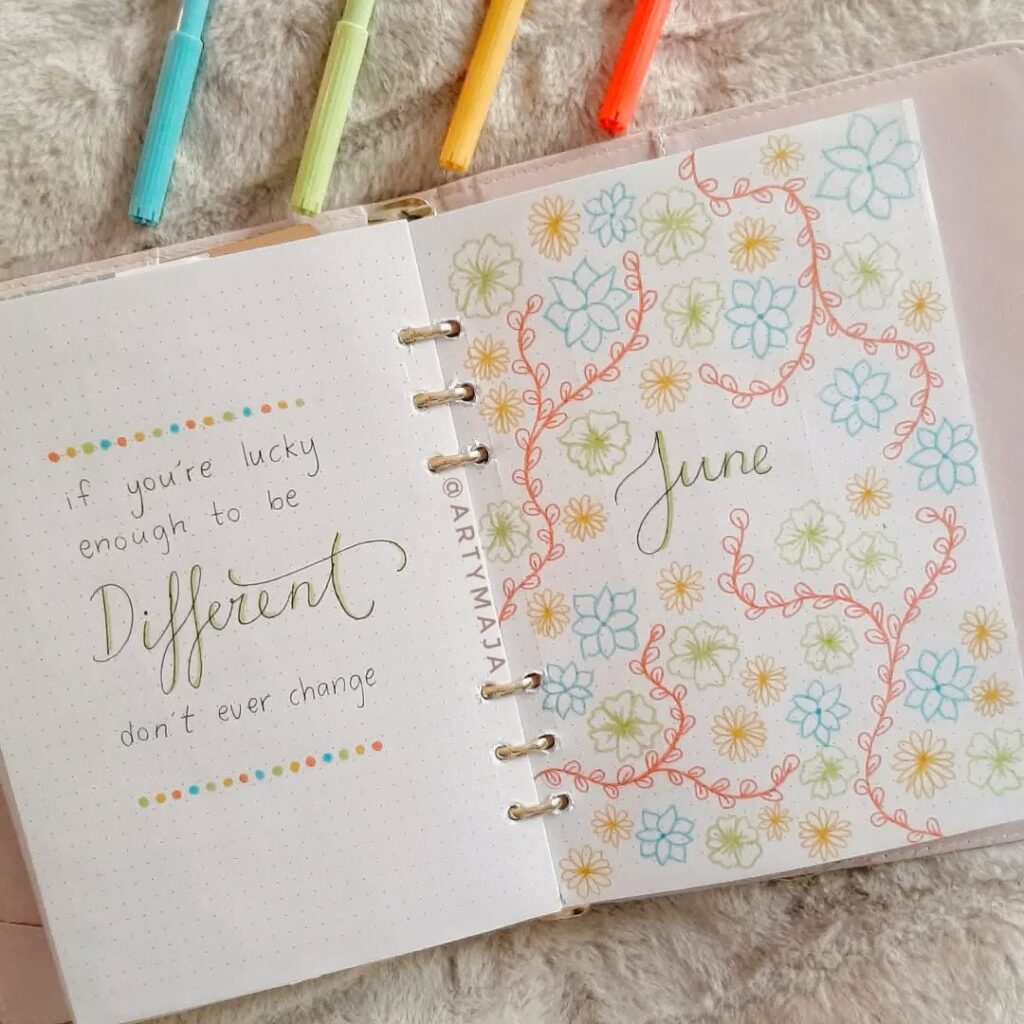 if you're lucky
enough to be
Different
don't ever change
@ARTYMAJA
June